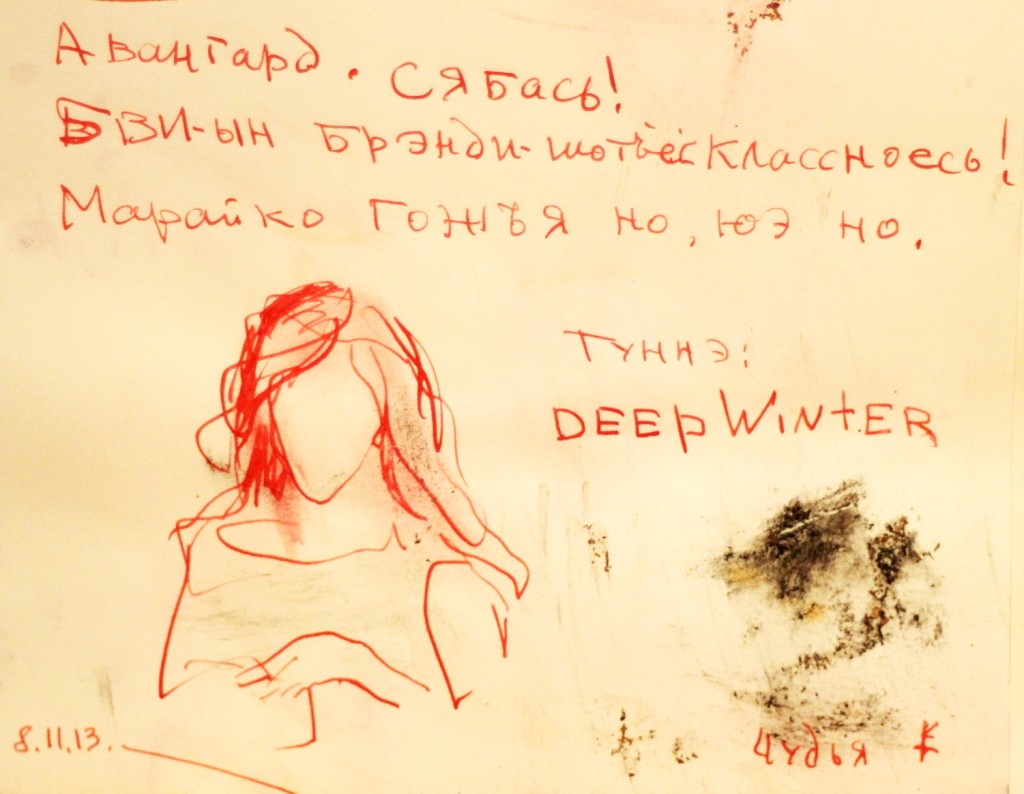 Авангард. Сябась!
БВИ-ын Брэнди-шотъёс классноесь!
Марайко гожъя но, юэ но.
Туннэ:
DEEP WINTER
8.11.13.
Чудья